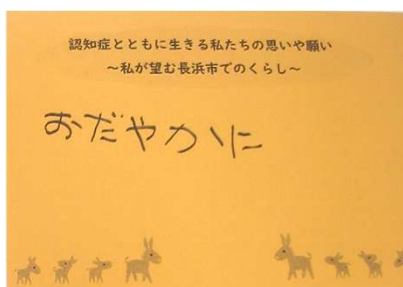 認知症とともに生きる私たちの思いや願い
～私が望む長浜市でのくらし～
おだやかに